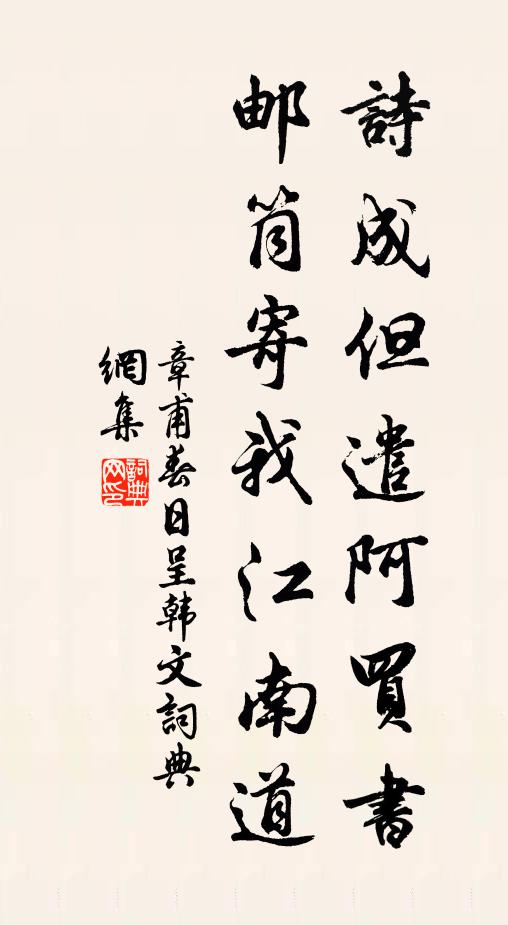 詩成但遣阿買書
邮筒寄我江南道
章甫春日呈韩文詞典
網集
詞典
网印